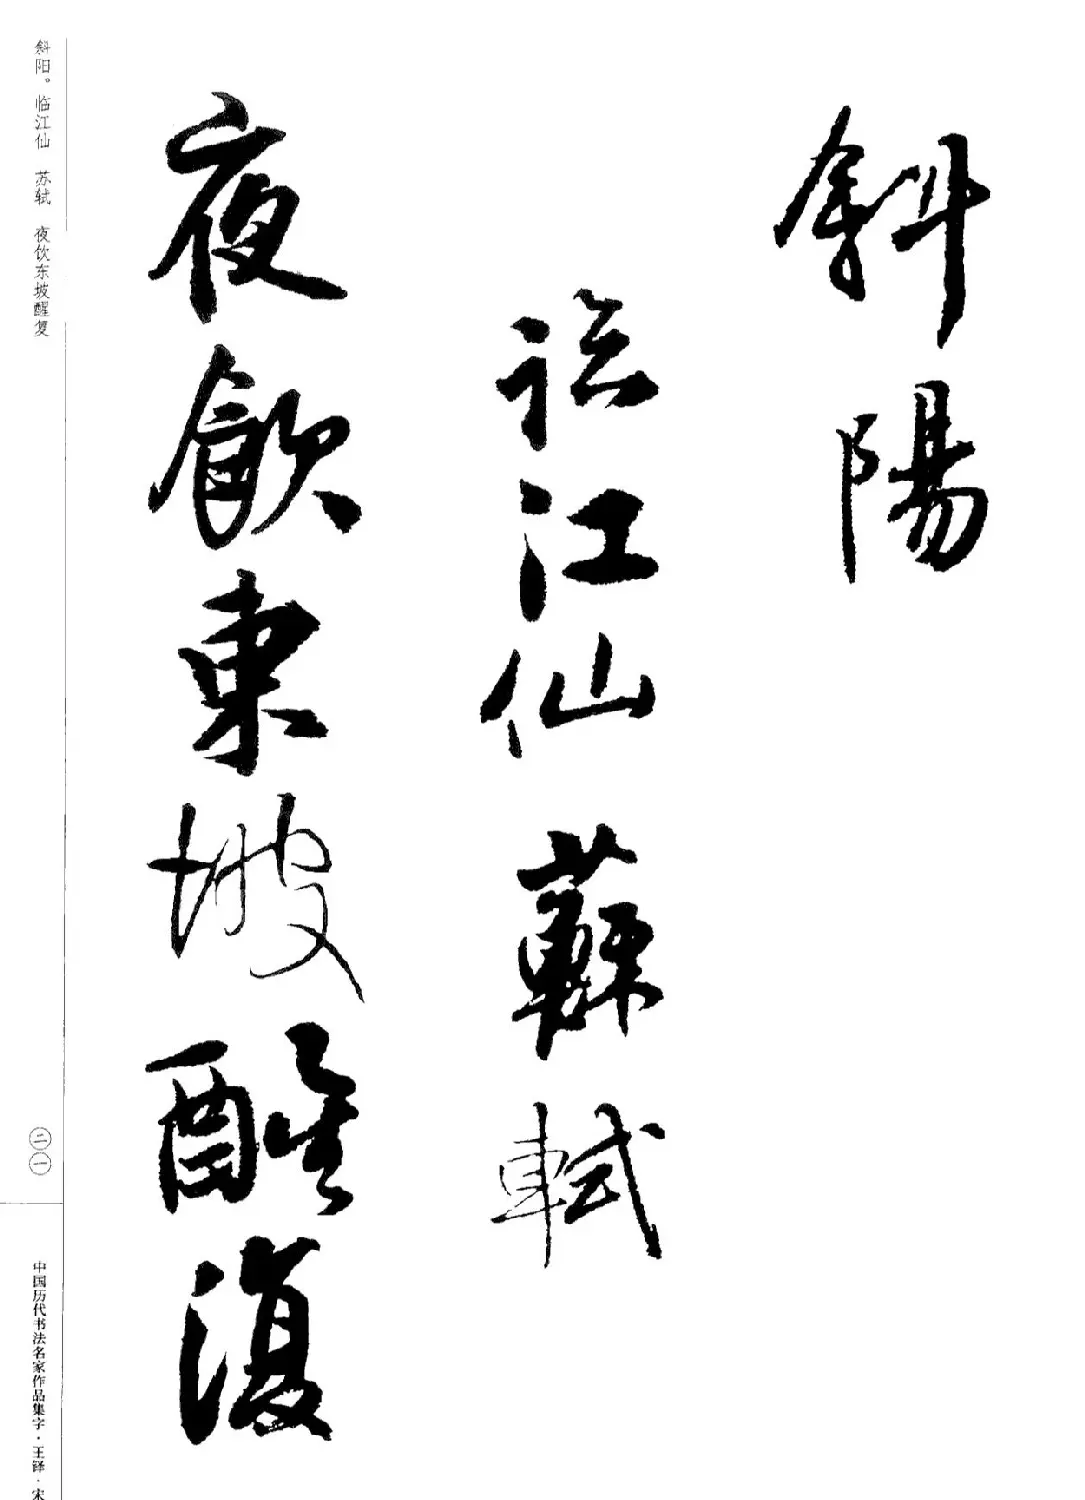 斜陽
臨江仙 蘇軾
夜飲東坡醒復
斜阳。临江仙 苏轼 夜饮东坡醒复
二一
中国历代书法名家作品集字·王铎·宋